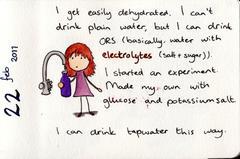 I get easily dehydrated. I can't
drink plain water, but I can drink
ORS (basically: water with
electrolytes (salt + sugar)).
I started an experiment.
Made my own with
glucose and potassium salt.
I can drink tapwater this way.
22 feb 2011